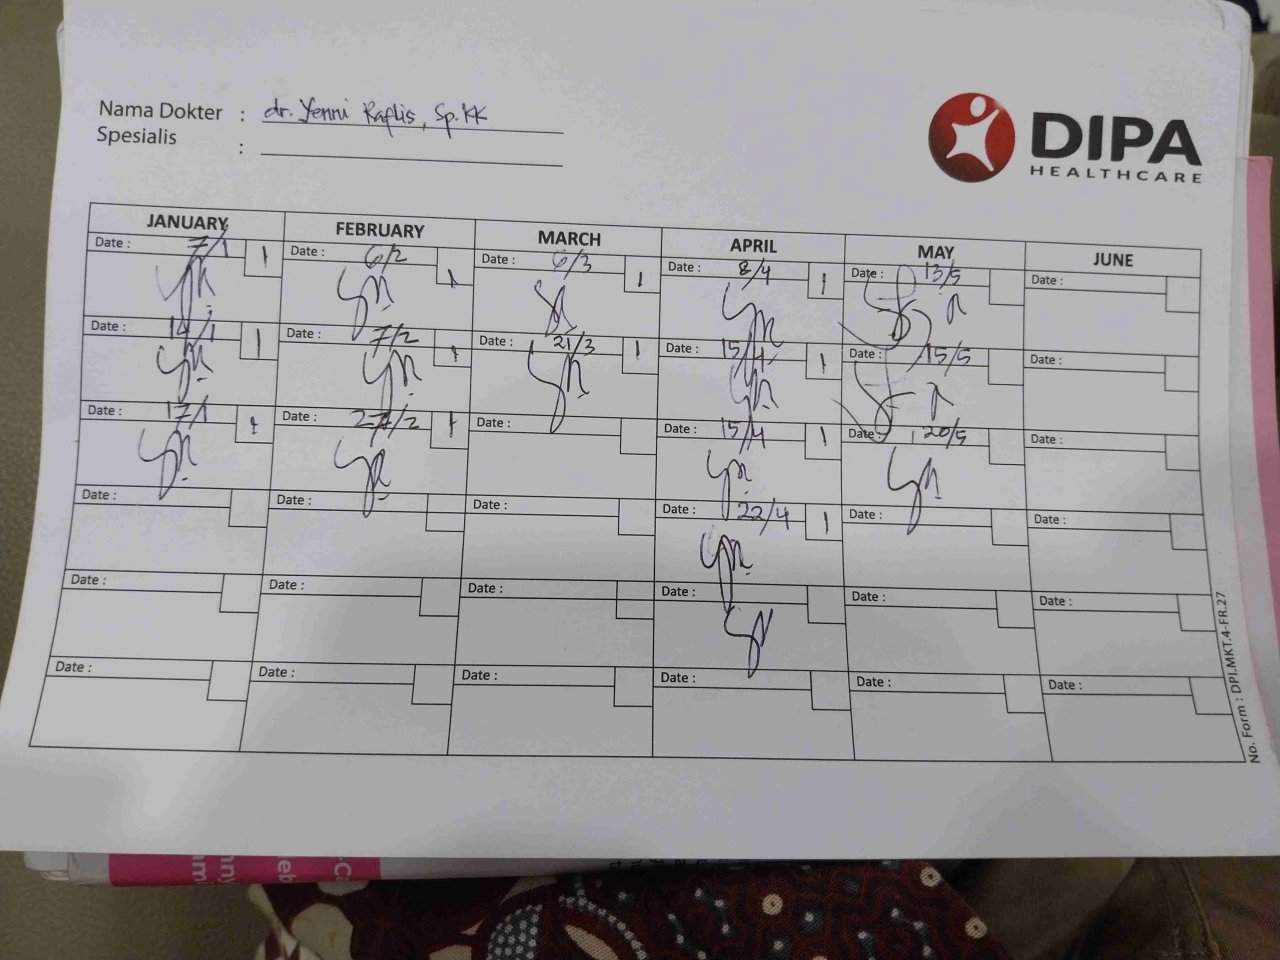 Nama Dokter : dr. Yenni Raflis, Sp.KK
Spesialis :
DIPA
HEALTHCARE
JANUARY FEBRUARY MARCH APRIL MAY JUNE
Date : 7/1 1 Date : 6/2 1 Date : 6/3 1 Date : 8/4 1 Date : 13/5 Date :
Date : 14/1 1 Date : 7/2 1 Date : 21/3 1 Date : 15/4 1 Date : 15/5 Date :
Date : 17/1 1 Date : 27/2 1 Date : Date : 15/4 1 Date : 20/5 Date :
Date : Date : Date : Date : 22/4 1 Date : Date :
Date : Date : Date : Date : Date : Date :
Date : Date : Date : Date : Date : Date :
No. Form : DPI.MKT.4-FR.27